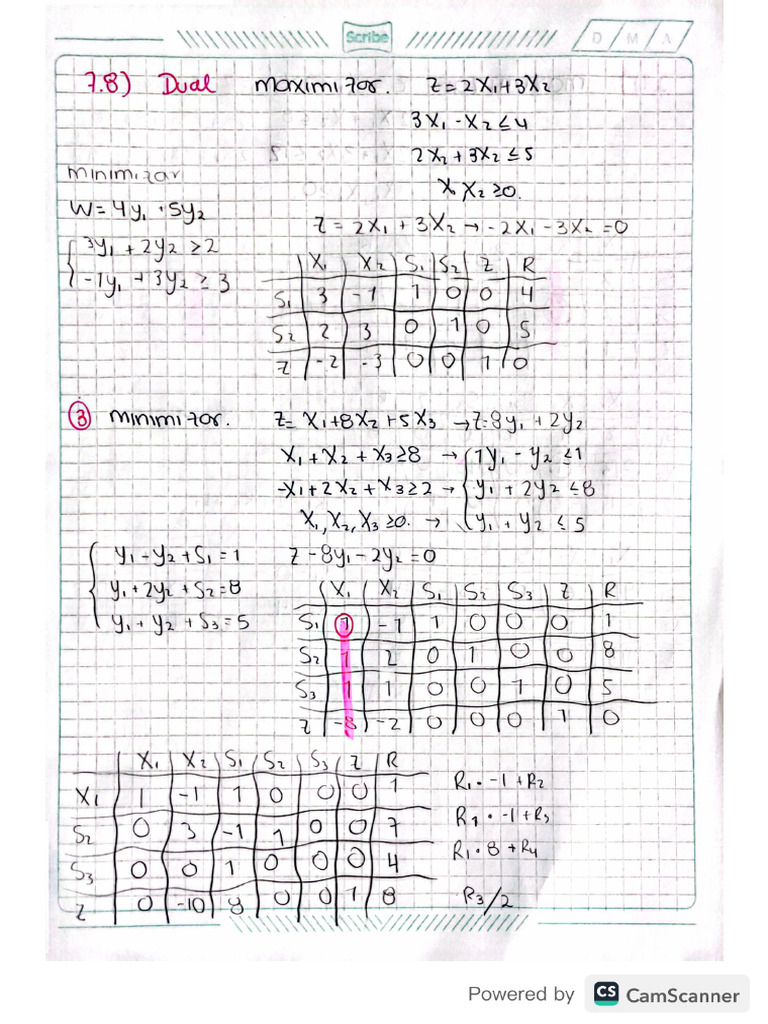 Scribe
D / M / A
7.8) Dual maximizar. Z=2X1+3X2
3X1 -X2 ≤4
2X2 + 3X2 ≤5
X, X2 ≥0.
minimizar
W= 4y1 + 5y2
Z = 2X1 + 3X2 → -2X1 -3X2 =0
3y1 + 2y2 ≥2
-1y1 + 3y2 ≥ 3
X1 | X2 | S1 | S2 | Z | R
S1 | 3 | -1 | 1 | 0 | 0 | 4
S2 | 2 | 3 | 0 | 1 | 0 | 5
Z | -2 | -3 | 0 | 0 | 1 | 0
3 minimizar. Z= X1+8X2 +5X3 → Z=8y1 +2y2
X1 + X2 + X3 ≥8 → 1y1 - y2 ≤1
-X1+2X2+X3≥2 → y1 + 2y2 ≤8
X1, X2, X3 ≥0. → y1 + y2 ≤ 5
y1 -y2 +S1 =1 Z -8y1 -2y2 =0
y1 +2y2 +S2=8
y1 + y2 + S3=5
X1 | X2 | S1 | S2 | S3 | Z | R
S1 | 1 | -1 | 1 | 0 | 0 | 0 | 1
S2 | 1 | 2 | 0 | 1 | 0 | 0 | 8
S3 | 1 | 1 | 0 | 0 | 1 | 0 | 5
Z | -8 | -2 | 0 | 0 | 0 | 1 | 0
X1 | X2 | S1 | S2 | S3 | Z | R
X1 | 1 | -1 | 1 | 0 | 0 | 0 | 1
S2 | 0 | 3 | -1 | 1 | 0 | 0 | 7
S3 | 0 | 0 | 1 | 0 | 0 | 0 | 4
Z | 0 | -10 | 8 | 0 | 0 | 1 | 8
R1 • -1 +R2
R1 • -1 +R3
R1 • 8 +R4
R3/2
Powered by CS CamScanner